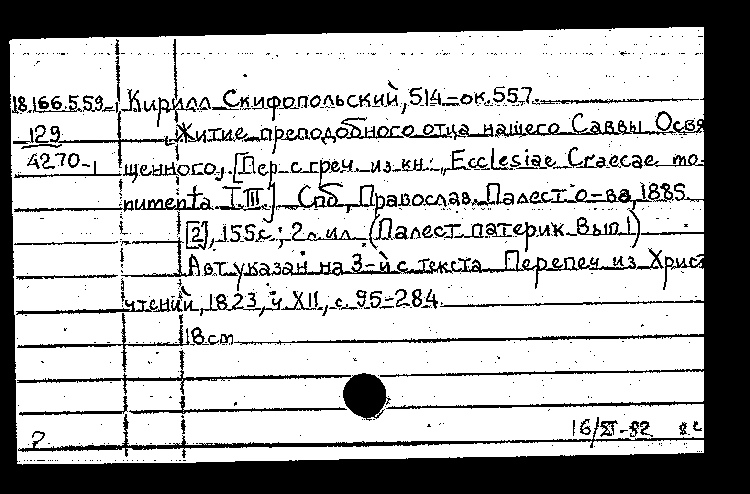 18.166.5.59 Кирилл Скифопольский, 514 – ок. 557.
129 „Житие преподобного отца нашего Саввы Освя
4270-1 щенного„. [Пер с греч. из кн: „Ecclesiae Craecae mo-
numenta T. III.] Спб, Православ. Палест о-во, 1885
[2], 155с.; 2л. ил. (Палест. патерик. Вып 1)
Авт указан на 3-й с текста Перепеч из Христ
чтений, 1823, ч. XII, с. 95-284.
18 cm
16/XI-82